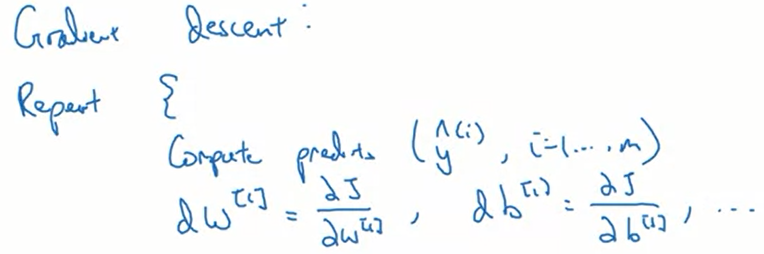 Gradient descent:
Repeat {
Compute predicts (ŷ^(i), i=1...,m)
dw^[1] = ∂J/∂w^[1], db^[1] = ∂J/∂b^[1], ...